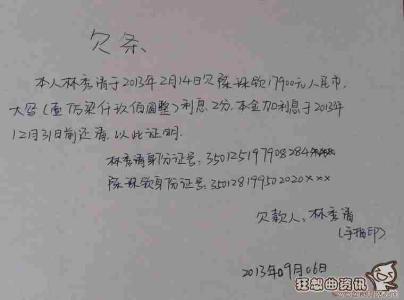 欠条
本人林秀清于2013年2月14日欠陈珠领17900元人民币,
大写(壹万柒仟玖佰圆整)利息2分.本金加利息于2013年
12月31日前还清.以此证明.
林秀清身份证号:350125197908284
陈珠领身份证号:350128199502020×××
欠款人:林秀清
(手指印)
2013年09月06日
狂想曲资讯